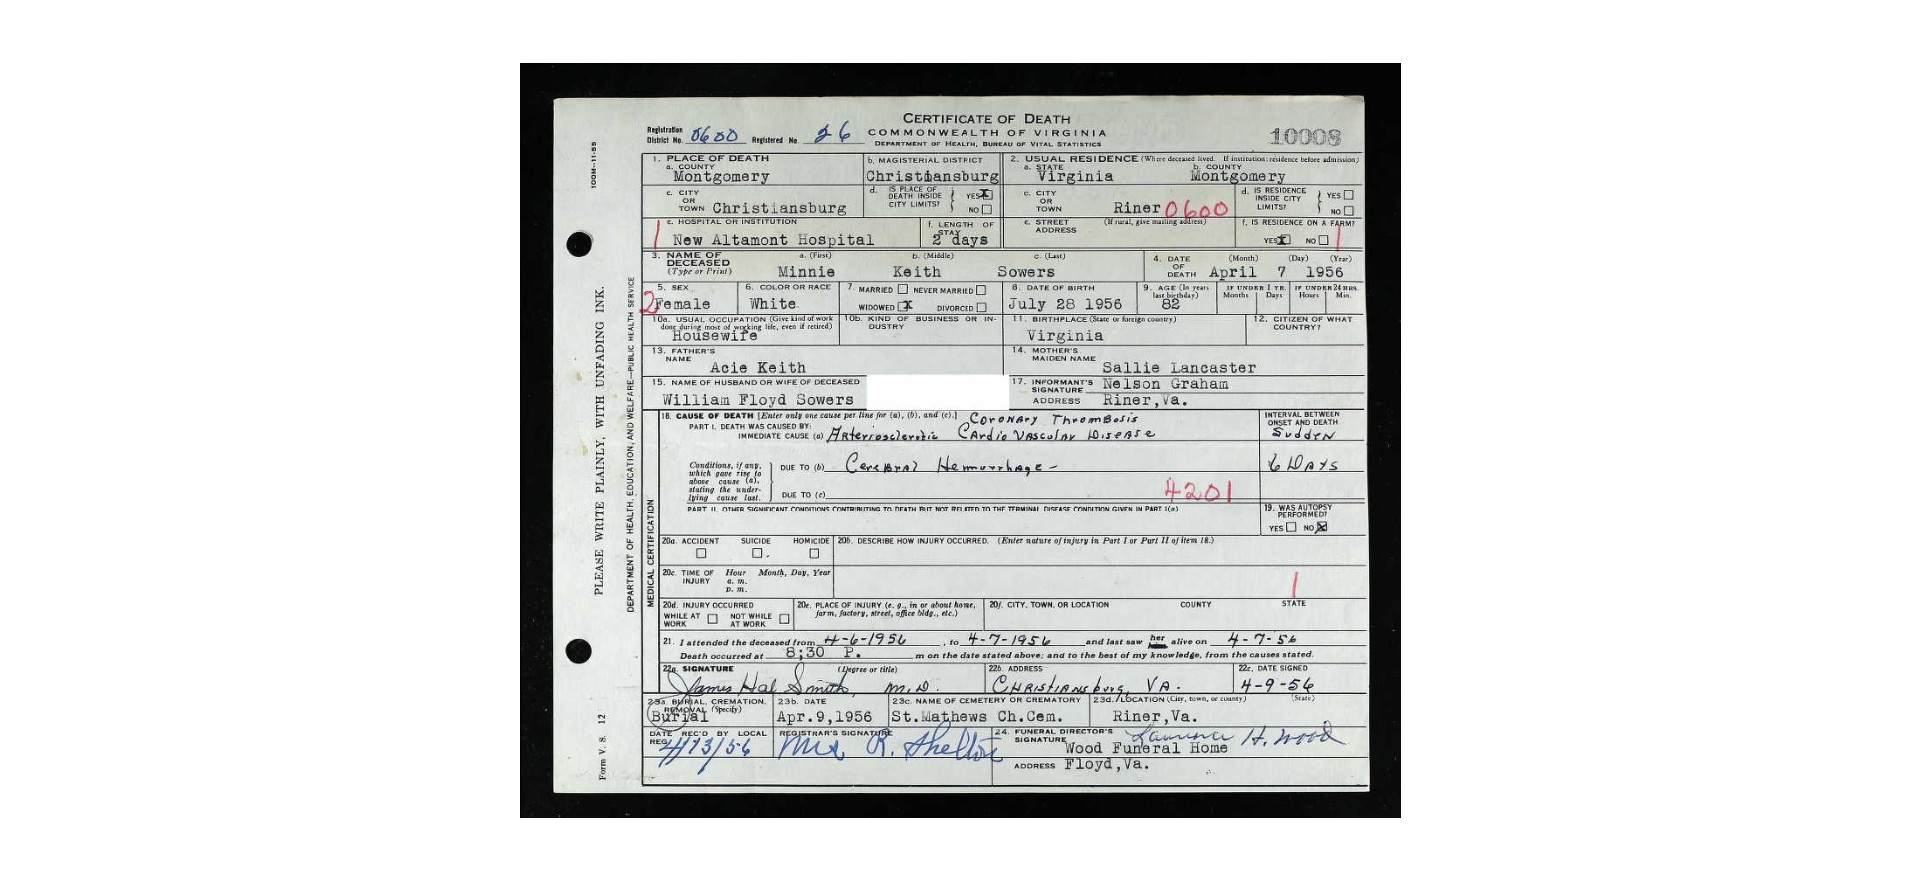 CERTIFICATE OF DEATH
COMMONWEALTH OF VIRGINIA
DEPARTMENT OF HEALTH, BUREAU OF VITAL STATISTICS
Registration District No. 0600 Registered No. 26
10008
100M-11-55
PLEASE WRITE PLAINLY, WITH UNFADING INK.
DEPARTMENT OF HEALTH, EDUCATION, AND WELFARE—PUBLIC HEALTH SERVICE
Form V. S. 12
1. PLACE OF DEATH
a. COUNTY
Montgomery
b. MAGISTERIAL DISTRICT
Christiansburg
2. USUAL RESIDENCE (Where deceased lived. If institution: residence before admission)
a. STATE
Virginia
b. COUNTY
Montgomery
c. CITY OR TOWN Christiansburg
d. IS PLACE OF DEATH INSIDE CITY LIMITS? YES X NO
c. CITY OR TOWN Riner 0600
d. IS RESIDENCE INSIDE CITY LIMITS? YES NO
1
e. HOSPITAL OR INSTITUTION
New Altamont Hospital
f. LENGTH OF STAY
2 days
e. STREET ADDRESS (If rural, give mailing address)
f. IS RESIDENCE ON A FARM?
YES X NO 1
3. NAME OF DECEASED (Type or Print)
a. (First) b. (Middle) c. (Last)
Minnie Keith Sowers
4. DATE OF DEATH (Month) (Day) (Year)
April 7 1956
2
5. SEX
Female
6. COLOR OR RACE
White
7. MARRIED NEVER MARRIED
WIDOWED X DIVORCED
8. DATE OF BIRTH
July 28 1956
9. AGE (In years last birthday)
82
IF UNDER 1 YR. Months Days
IF UNDER 24 HRS. Hours Min.
10a. USUAL OCCUPATION (Give kind of work done during most of working life, even if retired)
Housewife
10b. KIND OF BUSINESS OR INDUSTRY
11. BIRTHPLACE (State or foreign country)
Virginia
12. CITIZEN OF WHAT COUNTRY?
13. FATHER'S NAME
Acie Keith
14. MOTHER'S MAIDEN NAME
Sallie Lancaster
15. NAME OF HUSBAND OR WIFE OF DECEASED
William Floyd Sowers
17. INFORMANT'S SIGNATURE Nelson Graham
ADDRESS Riner,Va.
MEDICAL CERTIFICATION
18. CAUSE OF DEATH [Enter only one cause per line for (a), (b), and (c).] Coronary Thrombosis
PART I. DEATH WAS CAUSED BY:
IMMEDIATE CAUSE (a) Arteriosclerotic Cardio Vascular Disease
INTERVAL BETWEEN ONSET AND DEATH
Sudden
Conditions, if any, which gave rise to above cause (a), stating the underlying cause last.
DUE TO (b) Cerebral Hemorrhage -
6 Days
DUE TO (c)
4201
PART II. OTHER SIGNIFICANT CONDITIONS CONTRIBUTING TO DEATH BUT NOT RELATED TO THE TERMINAL DISEASE CONDITION GIVEN IN PART I(a)
19. WAS AUTOPSY PERFORMED?
YES NO X
20a. ACCIDENT SUICIDE HOMICIDE
20b. DESCRIBE HOW INJURY OCCURRED. (Enter nature of injury in Part I or Part II of item 18.)
20c. TIME OF INJURY Hour Month, Day, Year
a. m.
p. m.
1
20d. INJURY OCCURRED
WHILE AT WORK NOT WHILE AT WORK
20e. PLACE OF INJURY (e. g., in or about home, farm, factory, street, office bldg., etc.)
20f. CITY, TOWN, OR LOCATION COUNTY STATE
21. I attended the deceased from 4-6-1956, to 4-7-1956 and last saw her alive on 4-7-56
Death occurred at 8;30 P. m on the date stated above; and to the best of my knowledge, from the causes stated.
22a. SIGNATURE (Degree or title)
James Hal Smith, M.D.
22b. ADDRESS
Christiansburg, VA.
22c. DATE SIGNED
4-9-56
23a. BURIAL, CREMATION, REMOVAL (Specify)
Burial
23b. DATE
Apr.9,1956
23c. NAME OF CEMETERY OR CREMATORY
St.Mathews Ch.Cem.
23d. LOCATION (City, town, or county) (State)
Riner,Va.
DATE REC'D BY LOCAL REG.
4/13/56
REGISTRAR'S SIGNATURE
Mrs R. Shelton
24. FUNERAL DIRECTOR'S SIGNATURE
H. Wood
Wood Funeral Home
ADDRESS Floyd,Va.